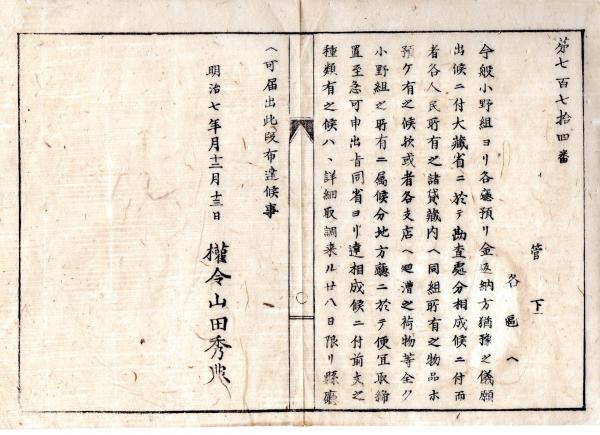 第七百七拾四番
管下
各區ヘ
今般小野組ヨリ各廳預リ金返納方猶豫之儀願
出候ニ付大藏省ニ於テ勘査處分相成候ニ付而
者各人民所有之諸貸藏内ヘ同組所有之物品ホ
預ケ有之候歟或者各支店ヘ廻漕之荷物等全ク
小野組之所有ニ属候分地方廳ニ於テ便宜取締
置至急可申出旨同省ヨリ達相成候ニ付前文之
種類有之候ハヽ詳細取調来ル廿八日限リ縣廳
ヘ可届出此段布達候事
明治七年月十二月十三日
權令山田秀典